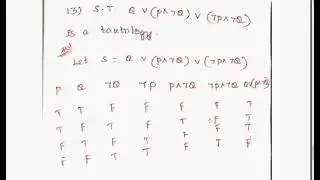 13) S.T Q ∨ (P∧¬Q) ∨ (¬P∧¬Q)
is a tautology.
Let S = Q ∨ (P∧¬Q) ∨ (¬P∧¬Q)
P Q ¬Q ¬P P∧¬Q ¬P∧¬Q Q∨(P∧¬Q)
T T F F F F T
T F T F T F T
F T F T F F T
F F T T F T F